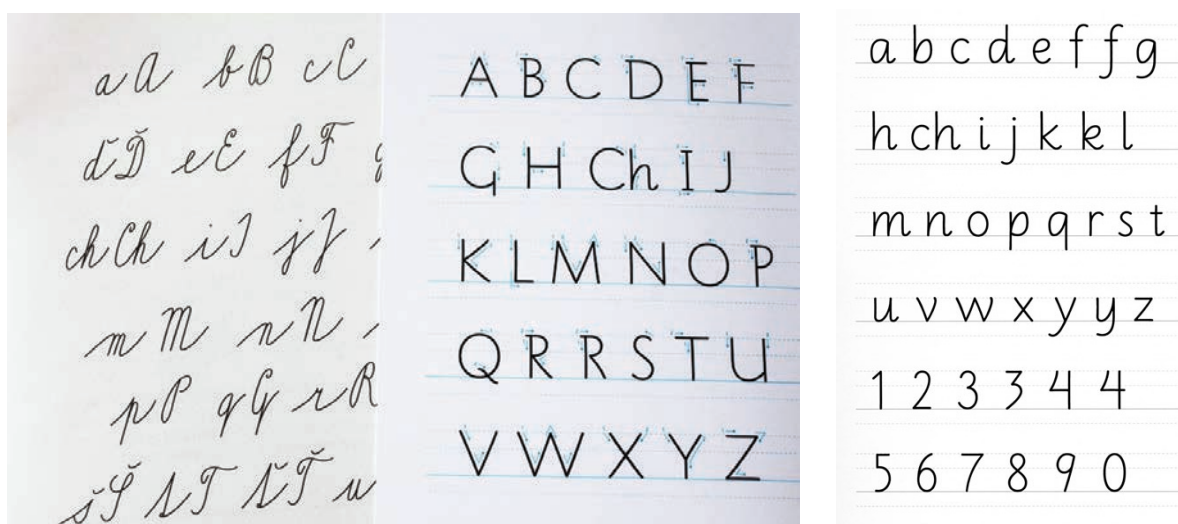 a A b B c C
ď Ď e E f F
ch Ch i I j J
m M n N
p P q Q r R
š Š t T ť Ť u
A B C D E F
G H Ch I J
K L M N O P
Q R R S T U
V W X Y Z
a b c d e f f g
h ch i j k k l
m n o p q r s t
u v w x y y z
1 2 3 3 4 4
5 6 7 8 9 0